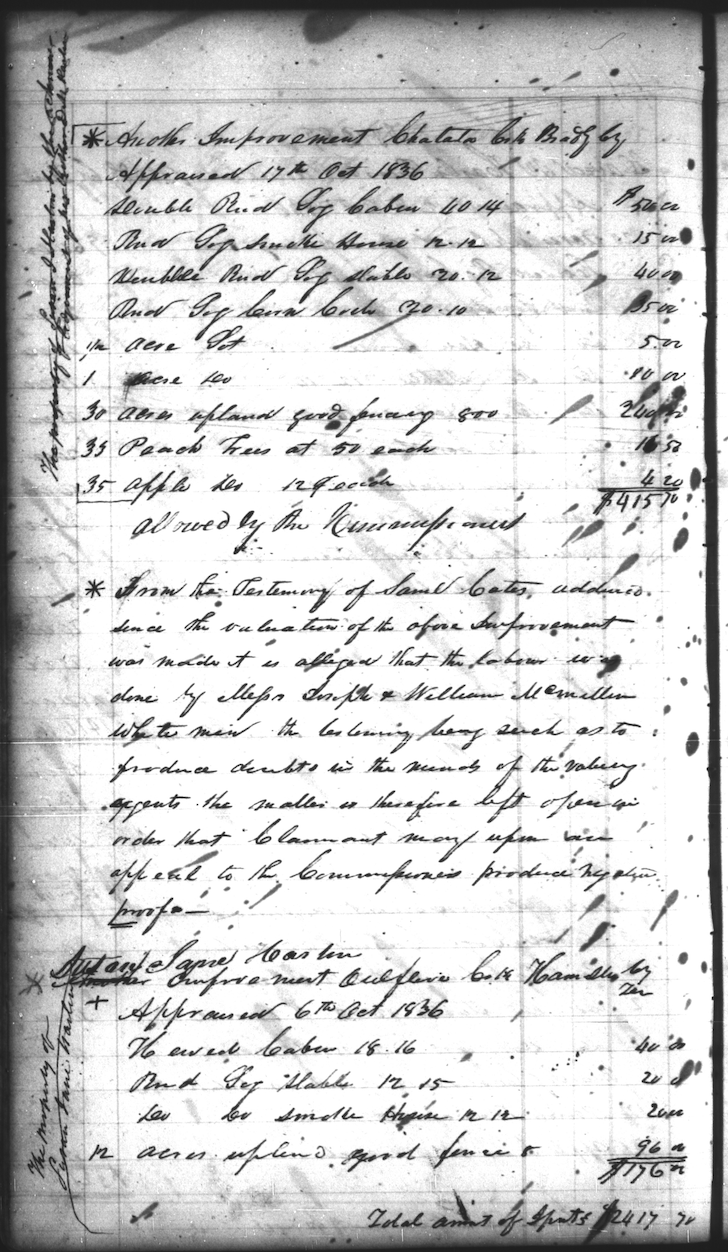 * Another Improvement Chatata Crk Bradly by
Appraised 17th Oct 1836
Double Rnd Log Cabin 40 14 $50 00
Rnd Log Smoke House 12.12 15 00
Doubble Rnd Log Stable 20.12 40 00
Rnd Log Corn Crib 20.10 35 00
1/2 acre Lot 5.00
1 acre Do 00
30 acres upland good fencing 800 240 00
33 Peach Trees at 50 each 16 50
35 apple Do 12 ¢ each 4 20
$415 70
allowed by the
* From the Testemony of Saml Cates, adduced
since the valuation of the above Improvement
was made it is alleged that the labour was
done by Messrs Joseph & William McMillen
white men the testemony being such as to
produce doubts in the minds of the valueing
agents the matter is therefore left open in
order that Claimant may upon an
appeal to the Commissioners produce
proofs—
Susan Jane Martin
* Another Improvement Crk Hamilton by
Ten
+ Appraised 6th Oct 1836
Hewed Cabin 18.16 40 00
Rnd Log Stable 12 15 20 0
Do Do Smoke House 12 12 20 00
12 acres upland good fence 8 96 00
$176 00
Total amt of $2417 70
The property of Susan J Martin by
The property of
Susan Jane Martin